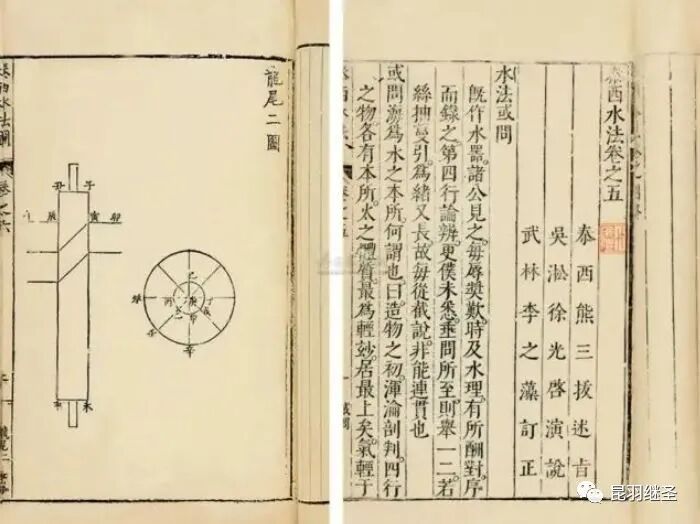 泰西水法卷之五
泰西熊三拔述旨
吳淞徐光啓演說
武林李之藻訂正
水法或問
既作水器諸公見之每辱奬歎時及水理有所酬對序
而錄之第四行論辨更僕未悉垂問所至則舉一二若
絲抽蔓引爲緒又長故每從截說非能連貫也
或問海爲水之本所何謂也曰造物之初渾淪剖判四行
之物各有本所太之體質最爲輕妙居最上矣氣輕于
泰西水法 卷之五 或問
龍尾二圖
丑 子
辰 寅 卯
午 未
泰西水法圖 卷之六 龍尾二
昆羽继圣